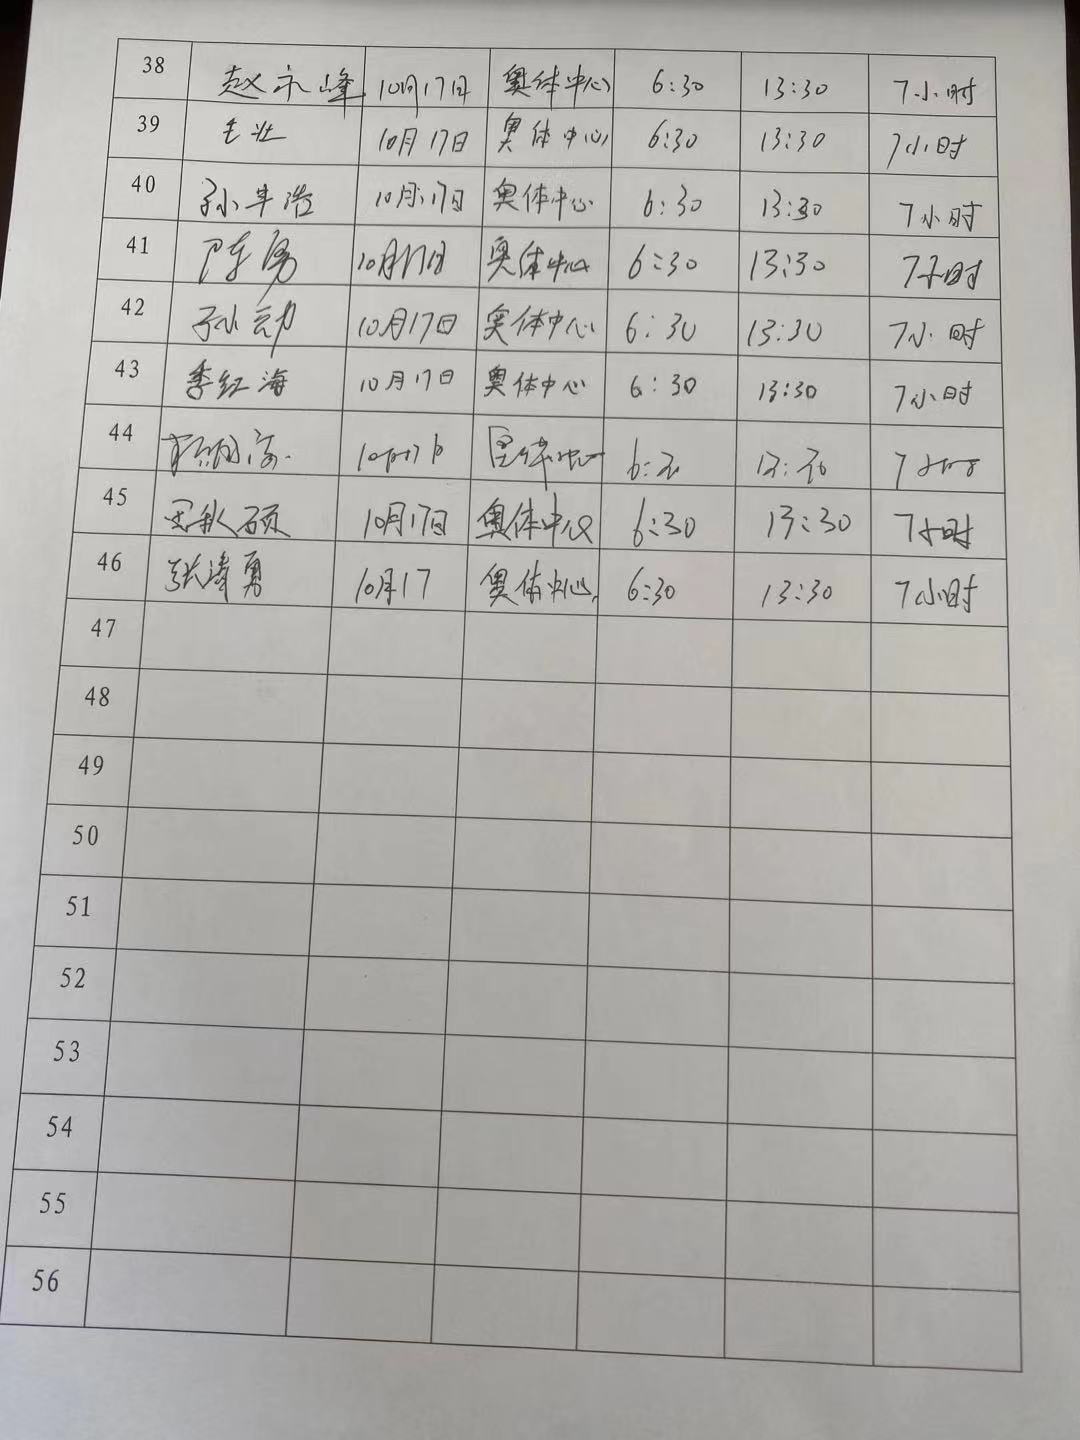 38 赵永峰 10月17日 奥体中心 6:30 13:30 7小时
39 毛壮 10月17日 奥体中心 6:30 13:30 7小时
40 孙丰浩 10月17日 奥体中心 6:30 13:30 7小时
41 陈勇 10月17日 奥体中心 6:30 13:30 7小时
42 孙云动 10月17日 奥体中心 6:30 13:30 7小时
43 季红海 10月17日 奥体中心 6:30 13:30 7小时
44 10月17日 奥体中心 6:30 13:30 7小时
45 田秋硕 10月17日 奥体中心 6:30 13:30 7小时
46 张清勇 10月17 奥体中心 6:30 13:30 7小时
47
48
49
50
51
52
53
54
55
56